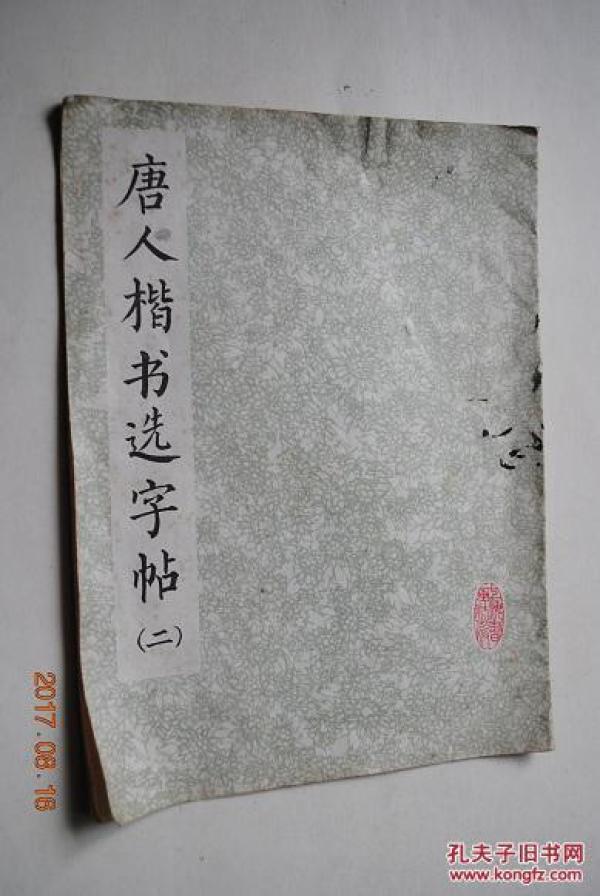 唐人楷书选字帖(二)
2017.08.16
孔夫子旧书网
www.kongfz.com